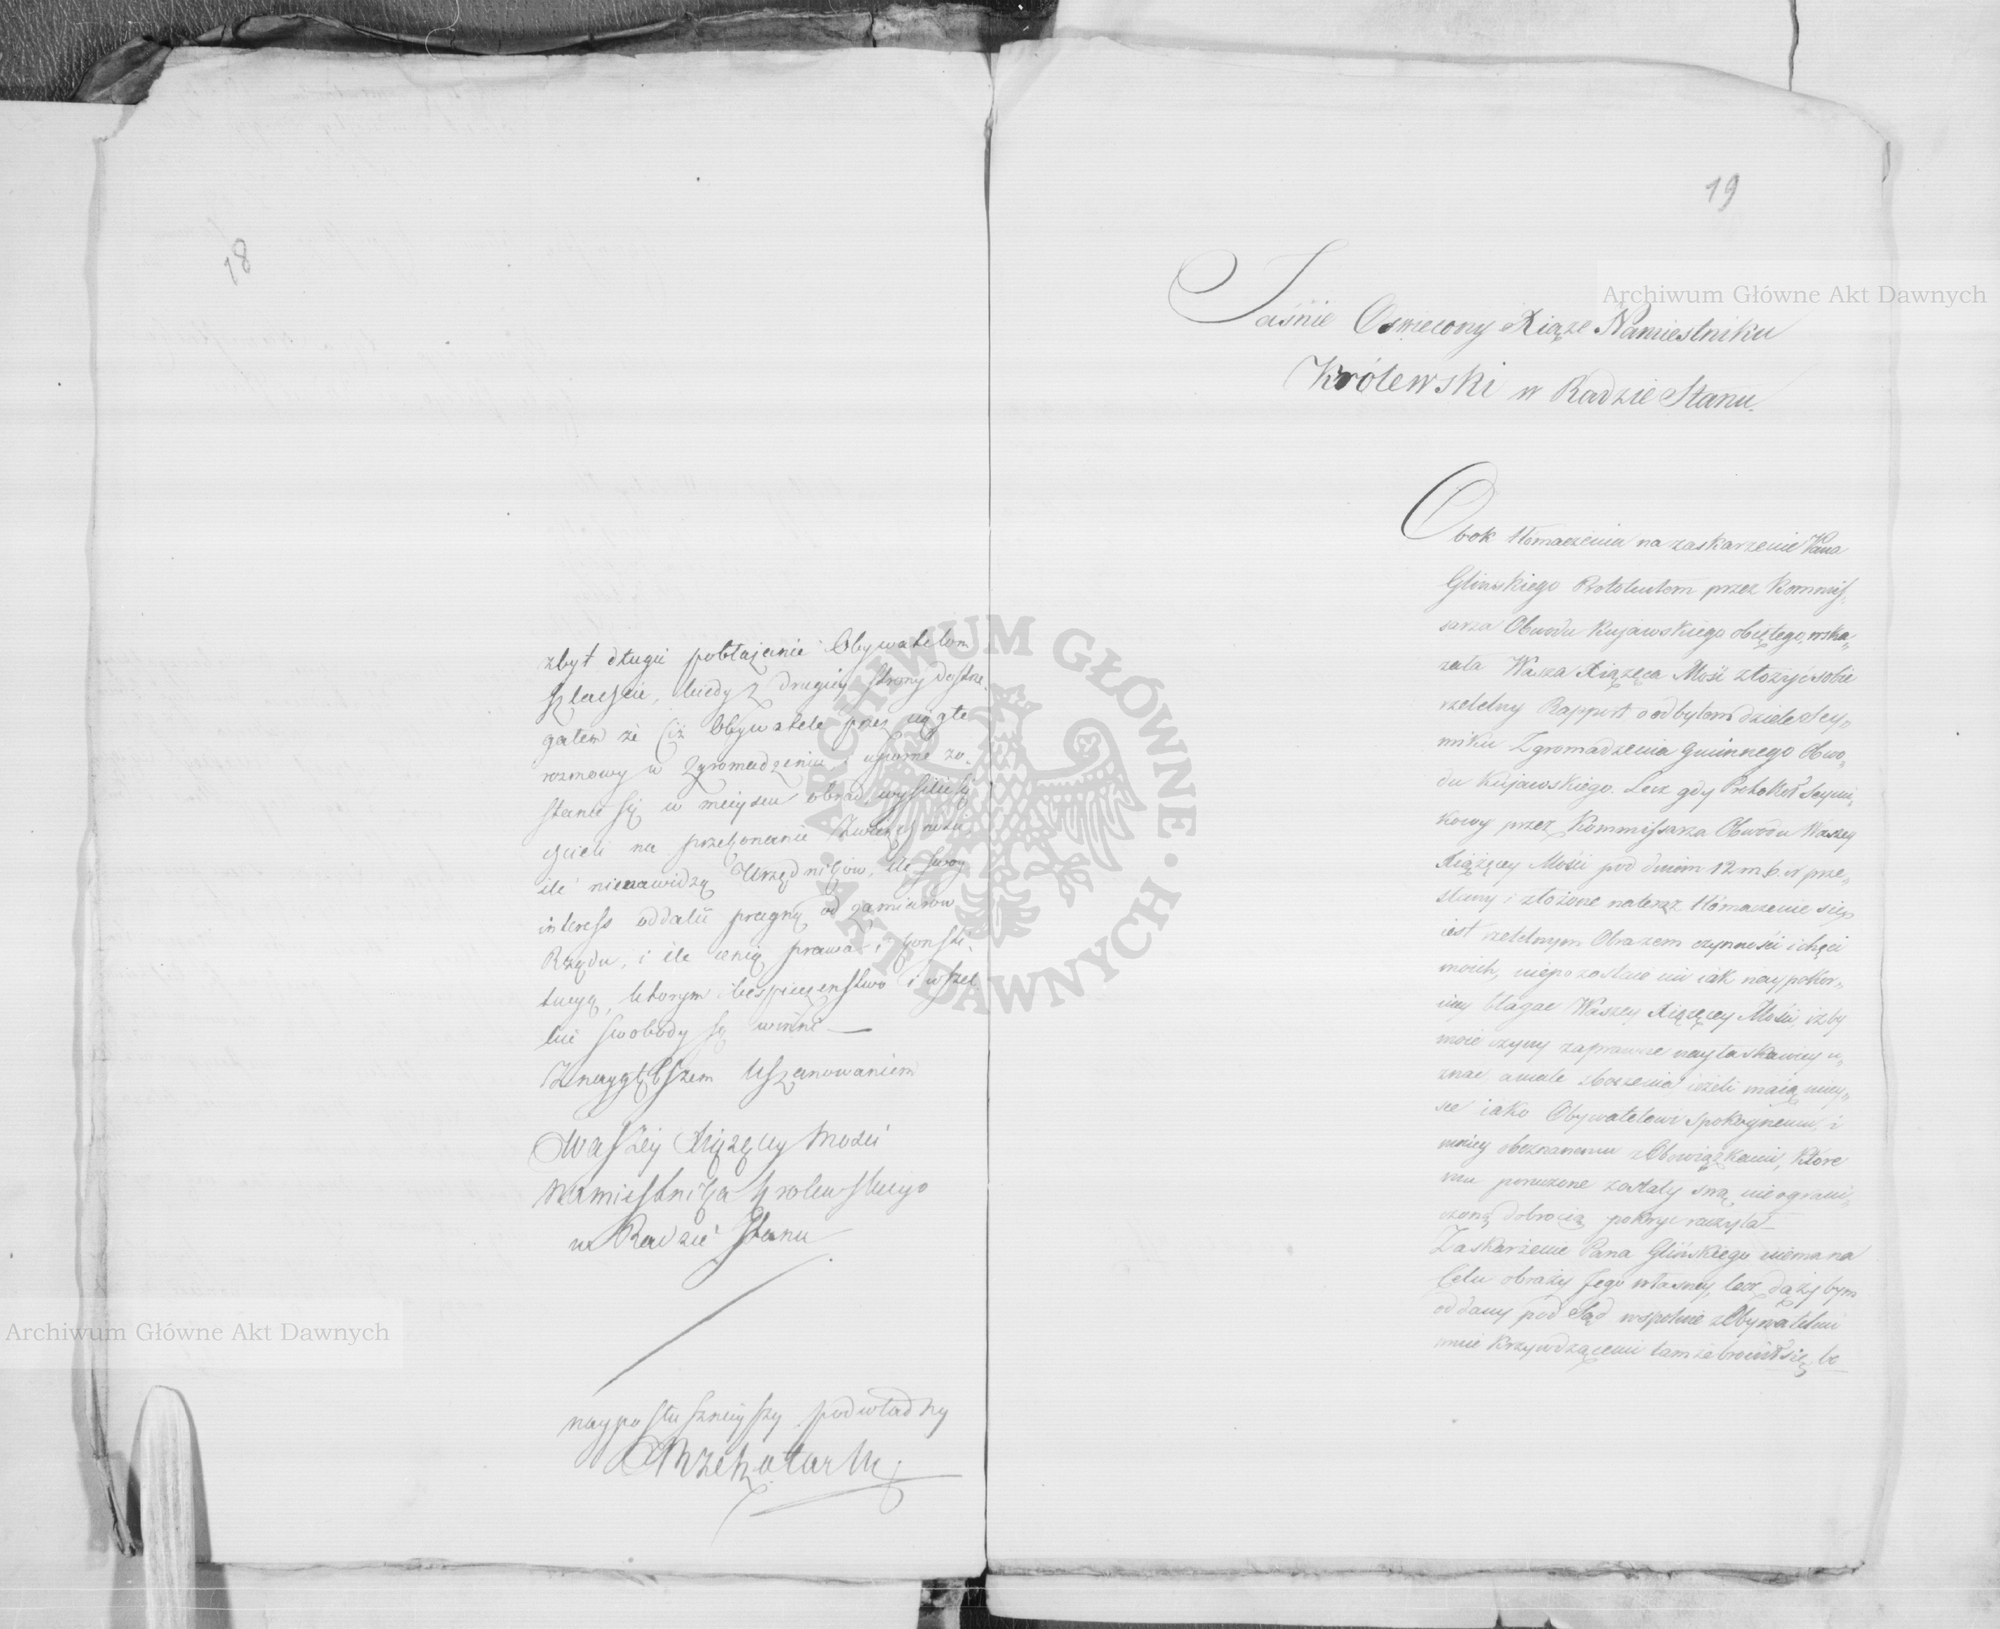 18
zbyt długie pobłażanie Obywatelom
szlachcie, kiedy z drugiey strony dostrze,
gałem że ciż Obywatele przez
rozmowy w Zgromadzeniu, i uporne zo,
stanie się w mieyscu obrad, wysilić się
chcieli na przekonanie
ile nienawidzą Urzędników, ile swoy
interess oddalić pragną od zamiarów
Rządu, i ile cenią prawa i konsty,
tucyą, którym bespieczeństwo i wszel
kie swobody są winni —
Z naygłębszem Uszanowaniem
Waszey Xiążęcey Mości
Namiestnika Krolewskiego
w Radzie Stanu
nayposłusznieyszy podwładny
19
Jaśnie Oswiecony Xiąże Namiestniku
Królewski w Radzie Stanu.
Obok tłomaczenia na zaskarzenie Pana
Glinskiego Protokułem przez Kommis,
sarza Obwodu Kujawskiego obiętego, wska,
zała Wasza Xiążęca Mość złożyć sobie
rzetelny Rapport o odbytem dziele Sey,
miku Zgromadzenia Gminnego Obwo,
du Kujawskiego. Lecz gdy Protokół Seymi,
kowy przez Kommissarza Obwodu Waszey
Xiążęcey Mości pod dniem 12 m. b. r prze,
słany i złożone nateraz tłómaczenie się
iest rzetelnym Obrazem czynności i chęci
moich, niepozostaie mi iak naypokor,
niey błagać Waszey Xiążęcey Mości, iżby
moie czyny zaprawne nayłaskawiey u,
znać a małe zboczenia ieżeli maią miey,
sce iako Obywatelowi spokoynemu, i
mniey obeznanemu z Obowiązkami, które
mu poruczone zostały swą nieograni,
czoną dobrocią pokryć raczyła —
Zaskarżenie Pana Glińskiego niema na
Celu obrazy Jego własney, lecz dąży bym
oddany pod Sąd wspolnie z Obywatelmi
mnie krzywdzącemi tamże bronił się, bo
Archiwum Główne Akt Dawnych
Archiwum Główne Akt Dawnych
ARCHIWUM GŁÓWNE AKT DAWNYCH